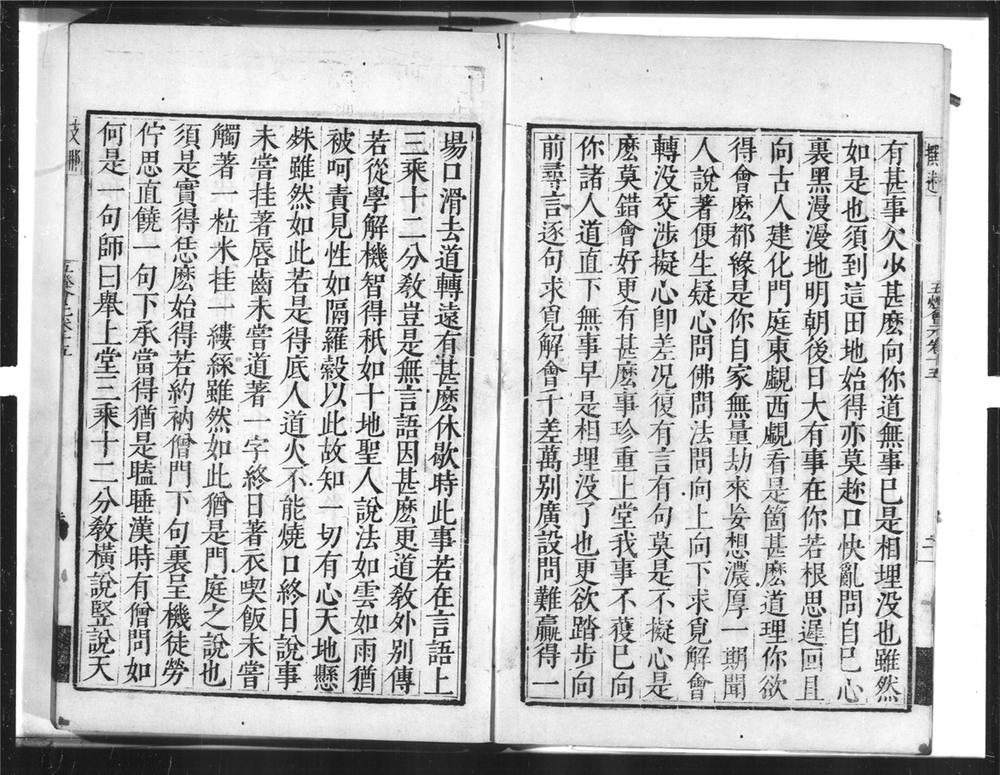 有甚事欠少甚麽向你道無事已是相埋没也雖然
如是也須到這田地始得亦莫趂口快亂問自已心
裏黑漫漫地明朝後日大有事在你若根思遲回且
向古人建化門庭東覷西覷看是箇甚麽道理你欲
得會麽都緣是你自家無量劫來妄想濃厚一期聞
人說著便生疑心問佛問法問向上向下求覓解會
轉没交涉擬心卽差况復有言有句莫是不擬心是
麽莫錯會好更有甚麽事珍重上堂我事不獲已向
你諸人道直下無事早是相埋没了也更欲踏步向
前尋言逐句求覓解會千差萬别廣設問難贏得一
場口滑去道轉遠有甚麽休歇時此事若在言語上
三乘十二分敎豈是無言語因甚麽更道敎外别傳
若從學解機智得秖如十地聖人說法如雲如雨猶
被呵責見性如隔羅縠以此故知一切有心天地懸
殊雖然如此若是得底人道火不能燒口終日說事
未嘗挂著唇齒未嘗道著一字終日著衣喫飯未嘗
觸著一粒米挂一縷絲雖然如此猶是門庭之說也
須是實得恁麽始得若約衲僧門下句裏呈機徒勞
佇思直饒一句下承當得猶是瞌睡漢時有僧問如
何是一句師曰舉上堂三乘十二分敎橫說竪說天
撰述
五燈會元卷十五
支那